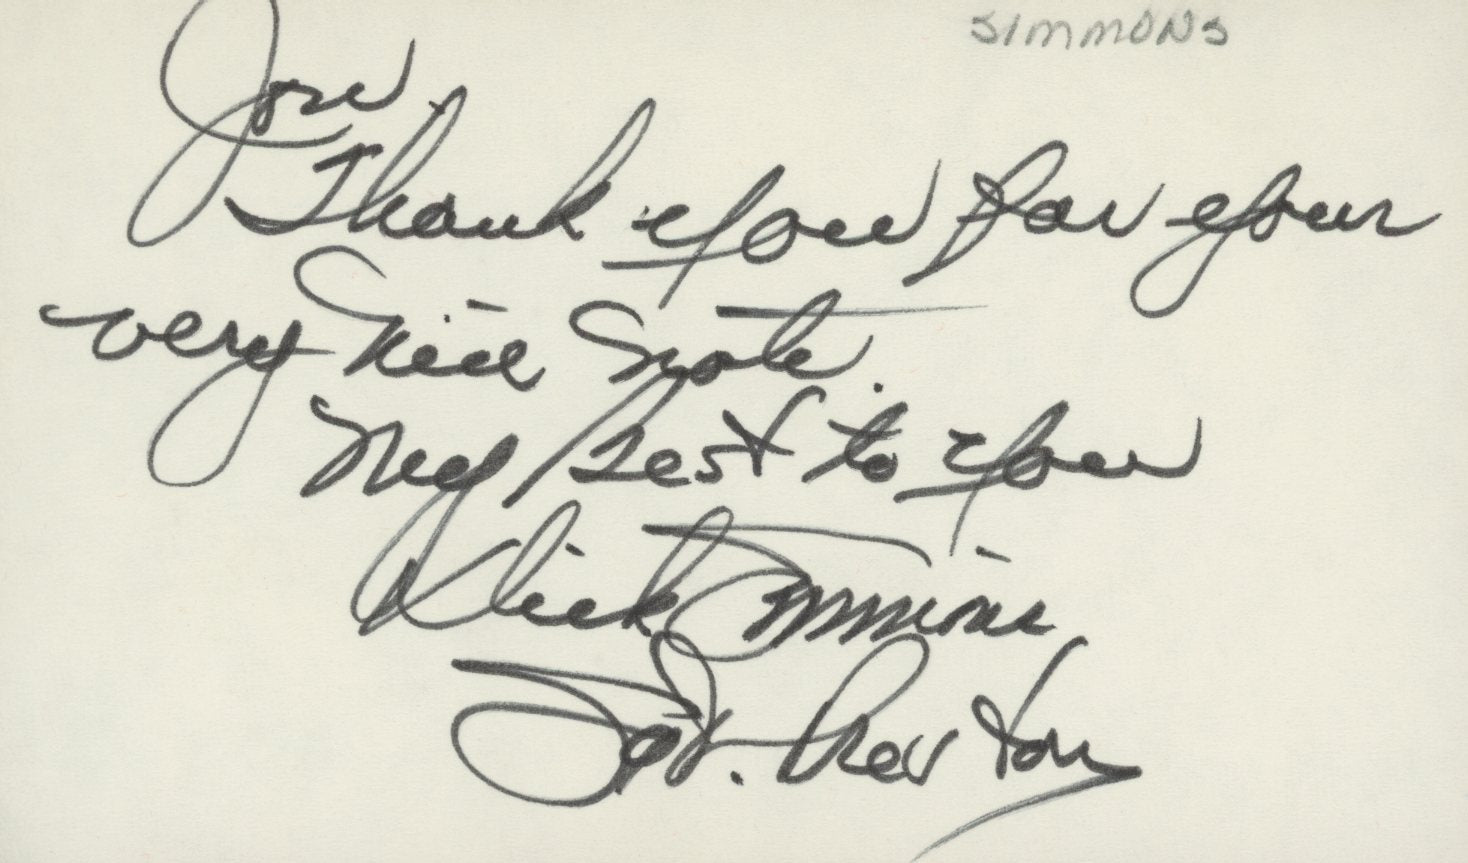 SIMMONS
Joe,
Thank you for your
very nice note.
My best to you
Dick Simmons
Sgt. Preston